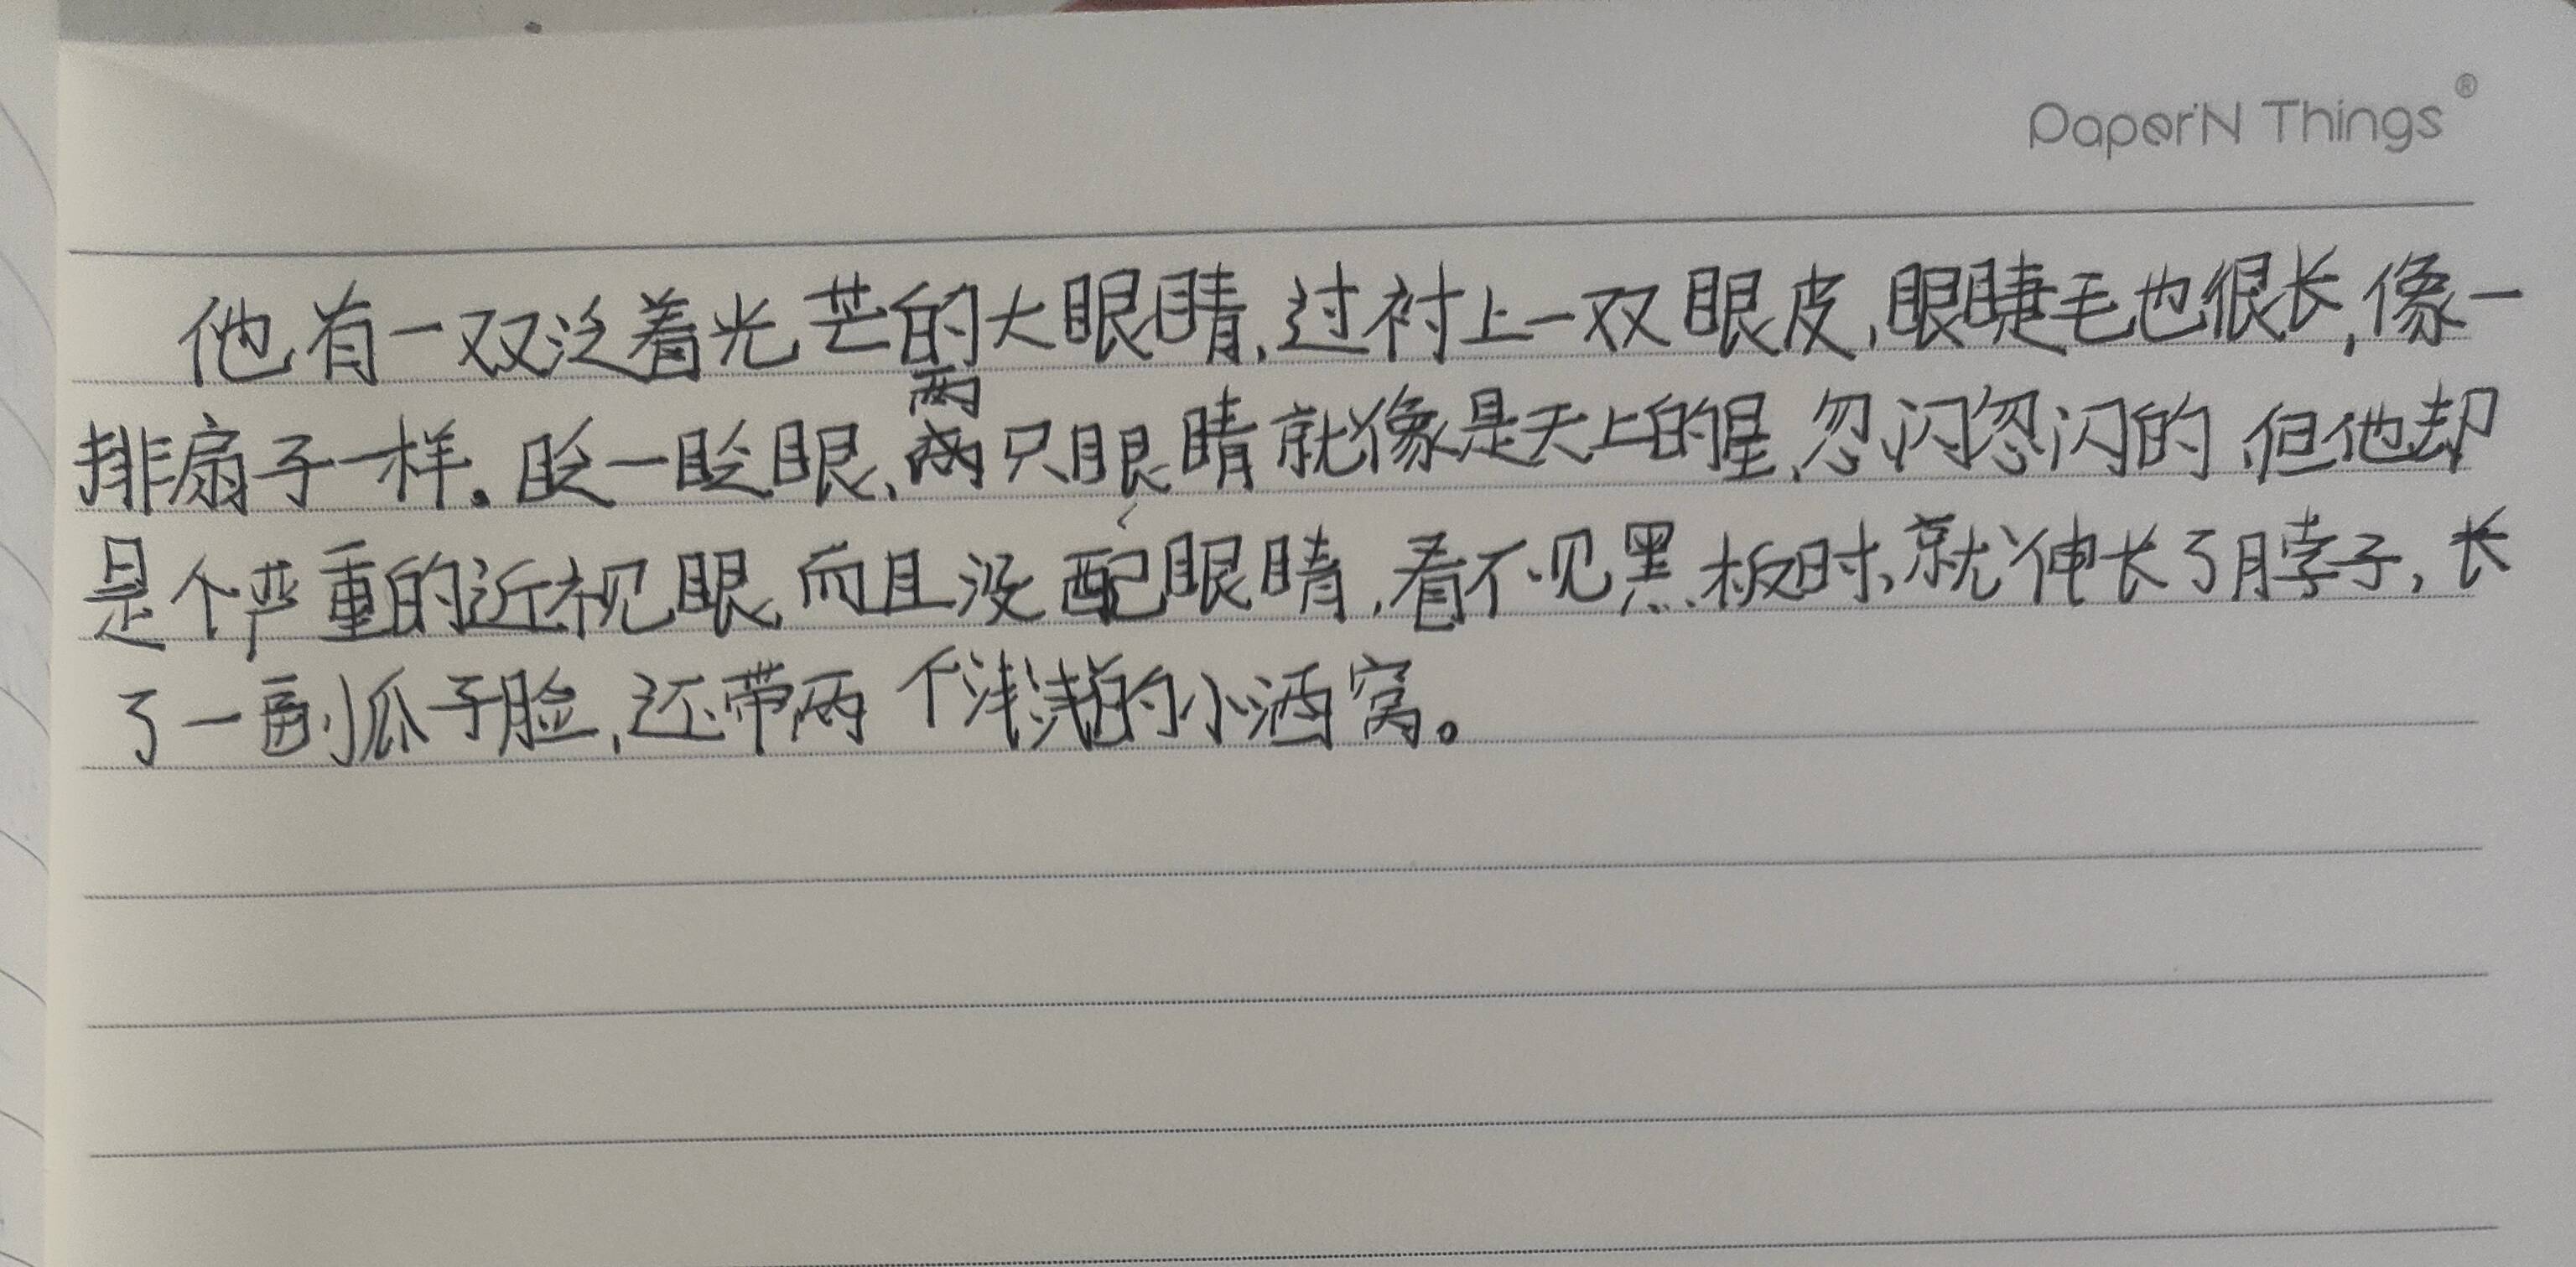 PaperN Things®
他有一双泛着光芒的大眼睛,过衬上一双眼皮,眼睫毛也很长,像一
排扇子一样。眨一眨眼,两只眼睛就像是天上的星,忽闪忽闪的,但他却
是个严重的近视眼,而且没配眼睛,看不见黑板时,就伸长了脖子,长
了一副瓜子脸,还带两个浅浅的小酒窝。